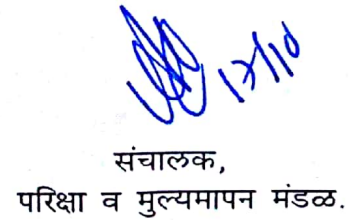 17/10
संचालक,
परिक्षा व मुल्यमापन मंडळ.